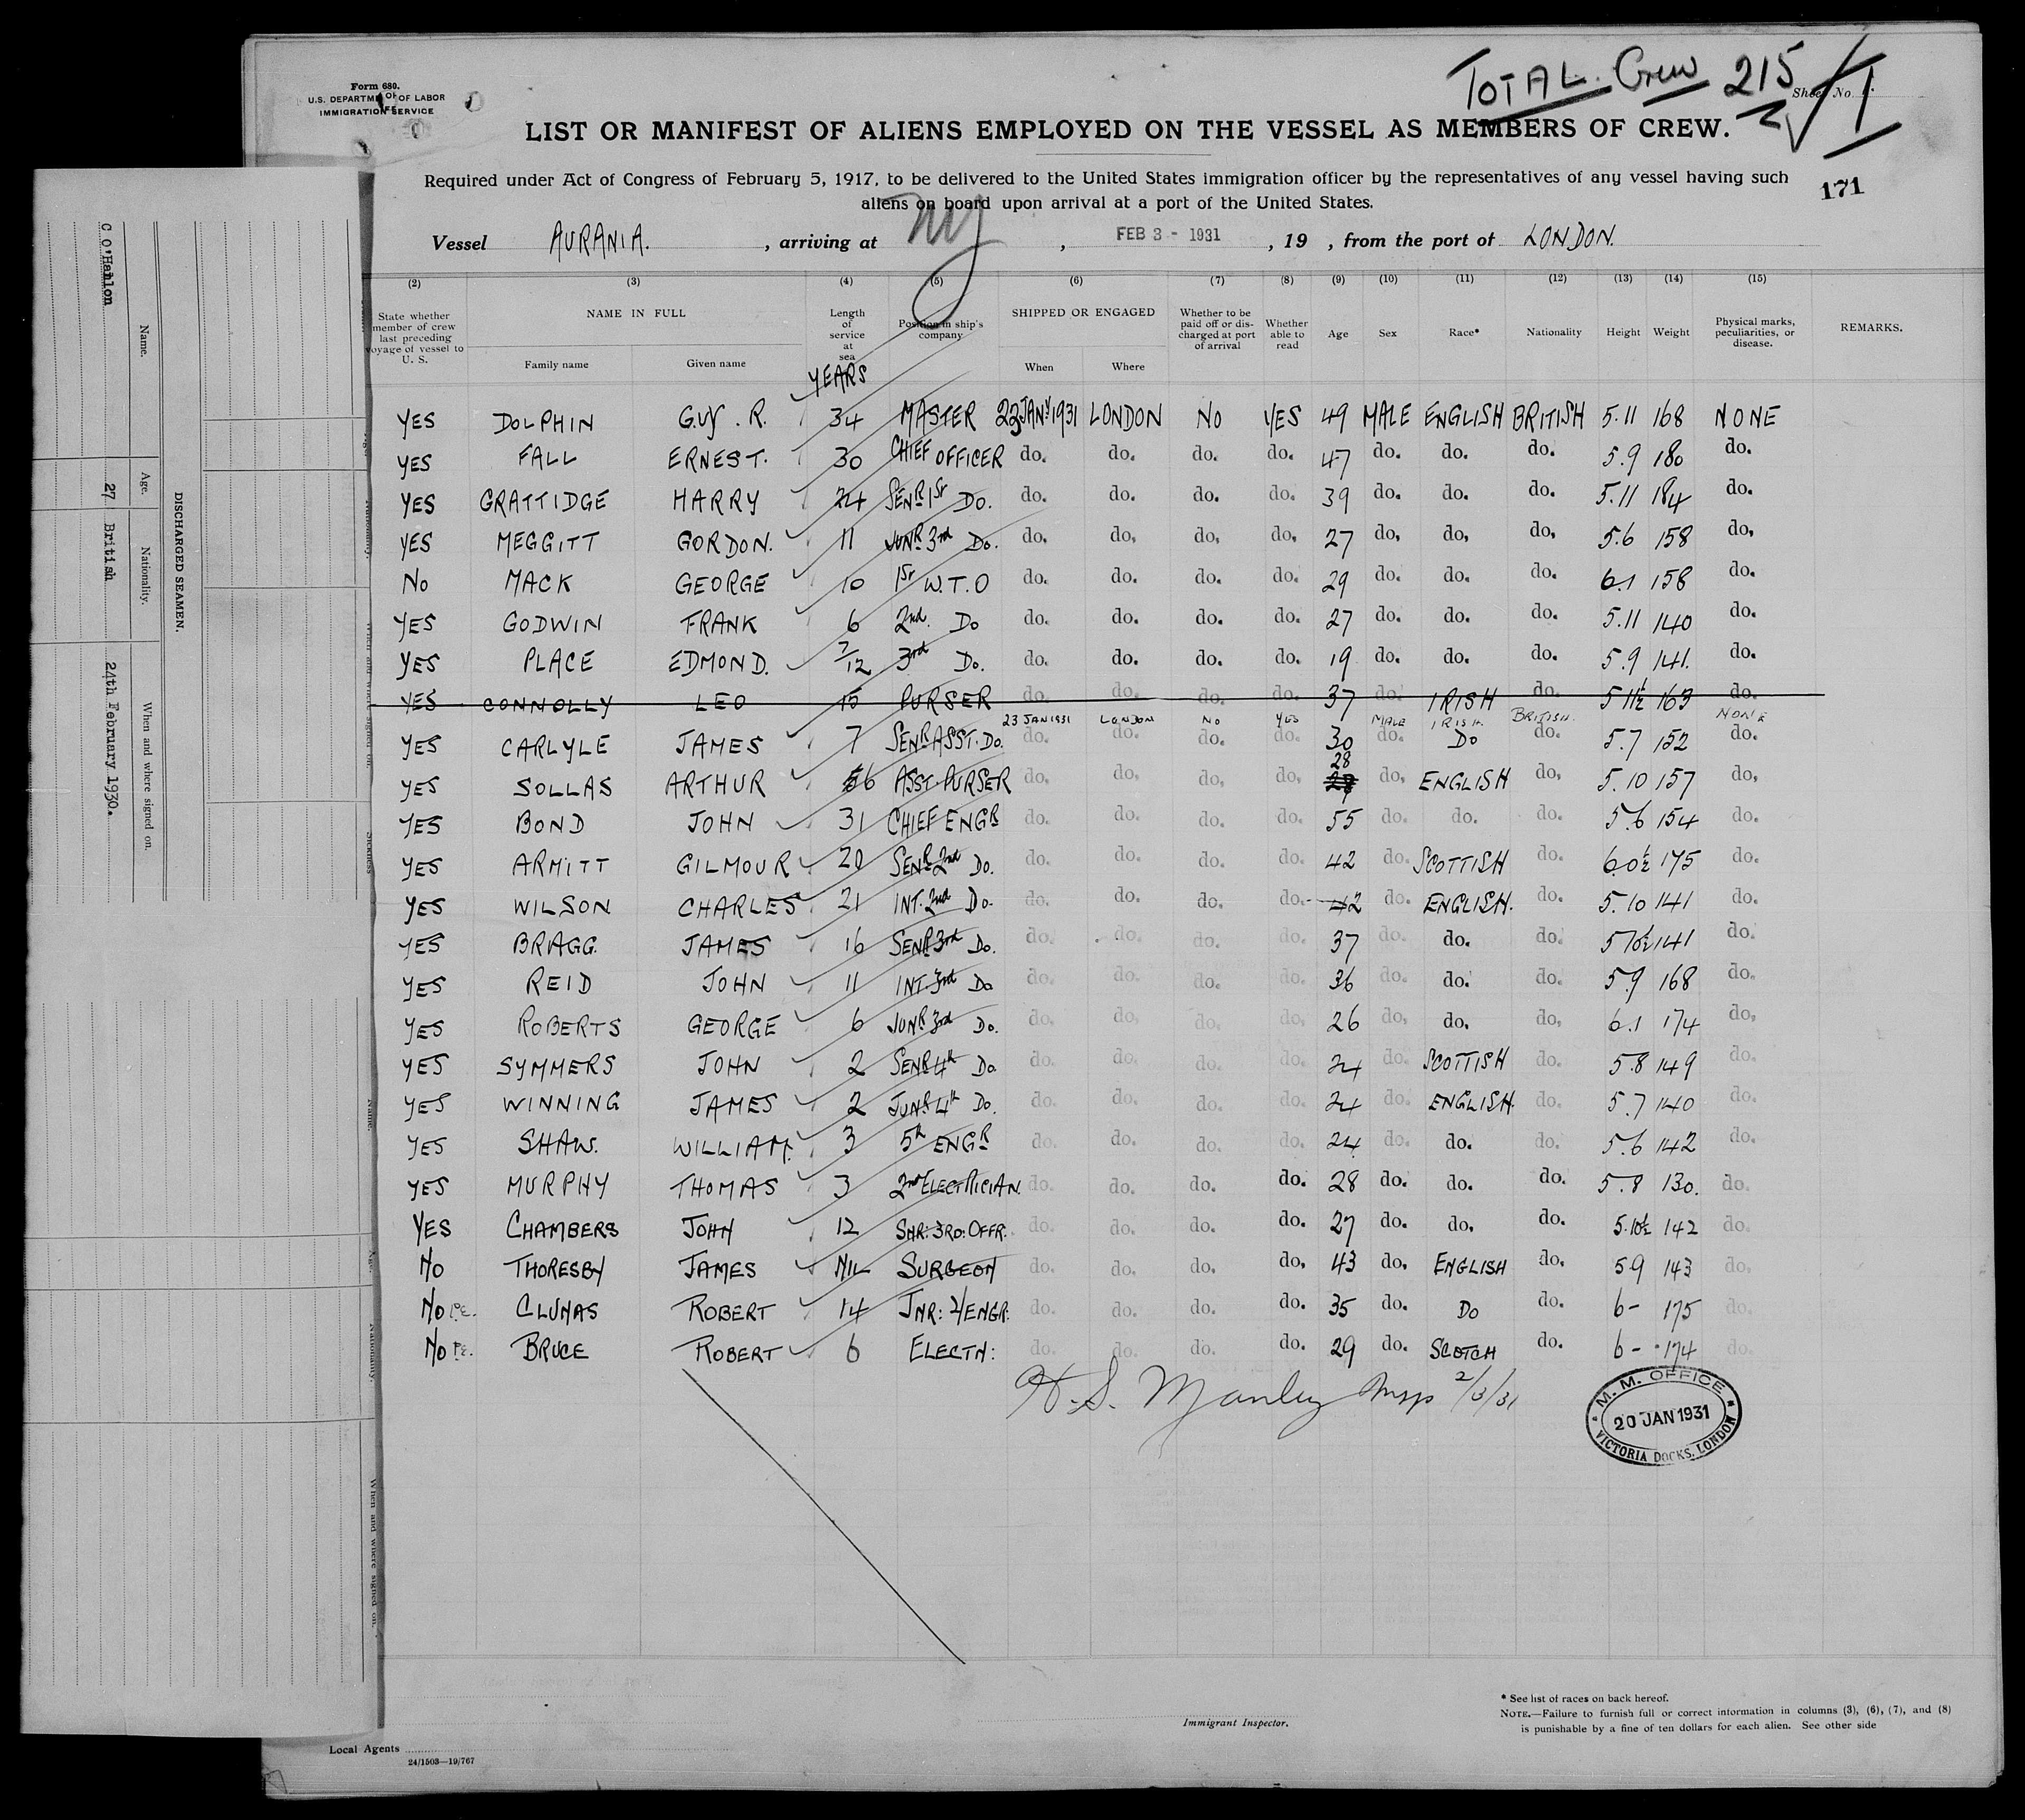 TOTAL Crew 215
Form 680.
U.S. DEPARTM OF LABOR
IMMIGRATION SERVICE
Sheet No. 1
LIST OR MANIFEST OF ALIENS EMPLOYED ON THE VESSEL AS MEMBERS OF CREW.
Required under Act of Congress of February 5, 1917, to be delivered to the United States immigration officer by the representatives of any vessel having such
aliens on board upon arrival at a port of the United States.
171
Vessel AURANIA. , arriving at NY , FEB 3 - 1931 , 19 , from the port of LONDON.
(2) (3) (4) (5) (6) (7) (8) (9) (10) (11) (12) (13) (14) (15)
State whether member of crew last preceding voyage of vessel to U. S. NAME IN FULL Family name Given name Length of service at sea Position in ship's company SHIPPED OR ENGAGED When Where Whether to be paid off or discharged at port of arrival Whether able to read Age Sex Race* Nationality Height Weight Physical marks, peculiarities, or disease. REMARKS.
YEARS
YES DOLPHIN GUY . R. 34 MASTER 23 JANY 1931 LONDON NO YES 49 MALE ENGLISH BRITISH 5.11 168 NONE
YES FALL ERNEST. 30 CHIEF OFFICER do. do. do. do. 47 do. do. do. 5.9 180 do.
YES GRATTIDGE HARRY 24 SENR 1ST DO. do. do. do. do. 39 do. do. do. 5.11 184 do.
YES MEGGITT GORDON. 11 JUNR 3rd Do. do. do. do. do. 27 do. do. do. 5.6 158 do.
NO MACK GEORGE 10 1ST W.T.O do. do. do. do. 29 do. do. do. 6.1 158 do.
YES GODWIN FRANK 6 2nd. Do do. do. do. do. 27 do. do. do. 5.11 140 do.
YES PLACE EDMOND. 7/12 3rd Do. do. do. do. do. 19 do. do. do. 5.9 141. do.
YES CONNOLLY LEO 15 PURSER do. do. do. do. 37 do. IRISH do. 5 11½ 163 do.
23 JAN 1931 LONDON NO YES MALE IRISH. BRITISH. NONE
YES CARLYLE JAMES 7 SENR ASST. DO. do. do. do. do. 30 do. DO do. 5.7 152 do.
28
YES SOLLAS ARTHUR 6 ASST. PURSER do. do. do. do. do. ENGLISH do. 5.10 157 do.
YES BOND JOHN 31 CHIEF ENGR do. do. do. do. 55 do. do. do. 5.6 154 do.
YES ARMITT GILMOUR 20 SENR 2nd DO. do. do. do. do. 42 do. SCOTTISH do. 6.0½ 175 do.
YES WILSON CHARLES 21 INT. 2nd Do. do. do. do. do. 42 do. ENGLISH. do. 5.10 141 do.
YES BRAGG. JAMES 16 SENR 3rd Do. do. do. do. do. 37 do. do. do. 5 10½ 141 do.
YES REID JOHN 11 INT. 3rd Do do. do. do. do. 36 do. do. do. 5.9 168 do.
YES ROBERTS GEORGE 6 JUNR 3rd Do. do. do. do. do. 26 do. do. do. 6.1 174 do.
YES SYMMERS JOHN 2 SENR 4th Do. do. do. do. do. 24 do. SCOTTISH do. 5.8 149 do.
YES WINNING JAMES 2 JUNR 4th Do. do. do. do. do. 24 do. ENGLISH. do. 5.7 140 do.
YES SHAW. WILLIAM. 3 5th ENGR do. do. do. do. 24 do. do. do. 5.6 142 do.
YES MURPHY THOMAS 3 2nd ELECTRICIAN. do. do. do. do. 28 do. do. do. 5.8 130. do.
YES CHAMBERS JOHN 12 SNR: 3RD: OFFR. do. do. do. do. 27 do. do. do. 5.10½ 142 do.
NO THORESBY JAMES NIL SURGEON do. do. do. do. 43 do. ENGLISH do. 5 9 143 do.
NO P.E. CLUNAS ROBERT 14 JNR: 2/ENGR: do. do. do. do. 35 do. DO do. 6 - 175 do.
NO P.E. BRUCE ROBERT 6 ELECTN: do. do. do. do. 29 do. SCOTCH do. 6 - 174 do.
H. S. Manley Insp 2/3/31
M. M. OFFICE
20 JAN 1931
VICTORIA DOCKS, LONDON
* See list of races on back hereof.
NOTE.—Failure to furnish full or correct information in columns (3), (6), (7), and (8)
is punishable by a fine of ten dollars for each alien. See other side
Immigrant Inspector.
Local Agents
24/1503—19/767
DISCHARGED SEAMEN.
Name. Age. Nationality. When and where signed on.
C O'Hanlon 27 British 24th February 1930.
Name. Age. Nationality. When and where signed on.